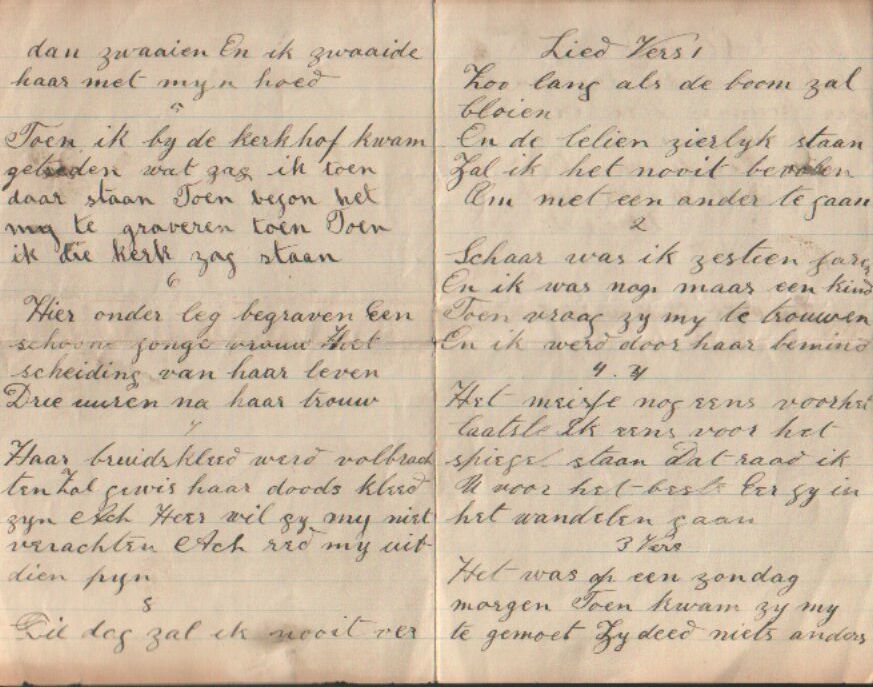 dan zwaaien En ik zwaaide
haar met myn hoed
5
Toen ik by de kerkhof kwam
getreden wat zag ik toen
daar staan Toen begon het
my te graveren toen Toen
ik die kerk zag staan
6
Hier onder leg begraven Een
schoone jonge vrouw Het
scheiding van haar leven
Drie uuren na haar trouw
7
Haar bruidskleed werd volbrach
ten Zal gewis haar doods kleed
zyn Ach Heer wil gy my niet
verachten Ach red my uit
dien pyn
8
Die dag zal ik nooit ver
Lied Vers 1
Zoo lang als de boom zal
bloien
En de lelien zierlyk staan
Zal ik het nooit
Om met een ander te gaan
2
Schaar was ik zestien jare
En ik was nog maar een kind
Toen vraag zy my te trouwen
En ik werd door haar bemind
4. 4
Het meisje nog eens voorhet
laatste Ik eens voor het
spiegel staan Dat raad ik
U voor het beste Eer gy in
het wandelen gaan
3 Vers
Het was op een zondag
morgen Toen kwam zy my
te gemoet Zy deed niets anders